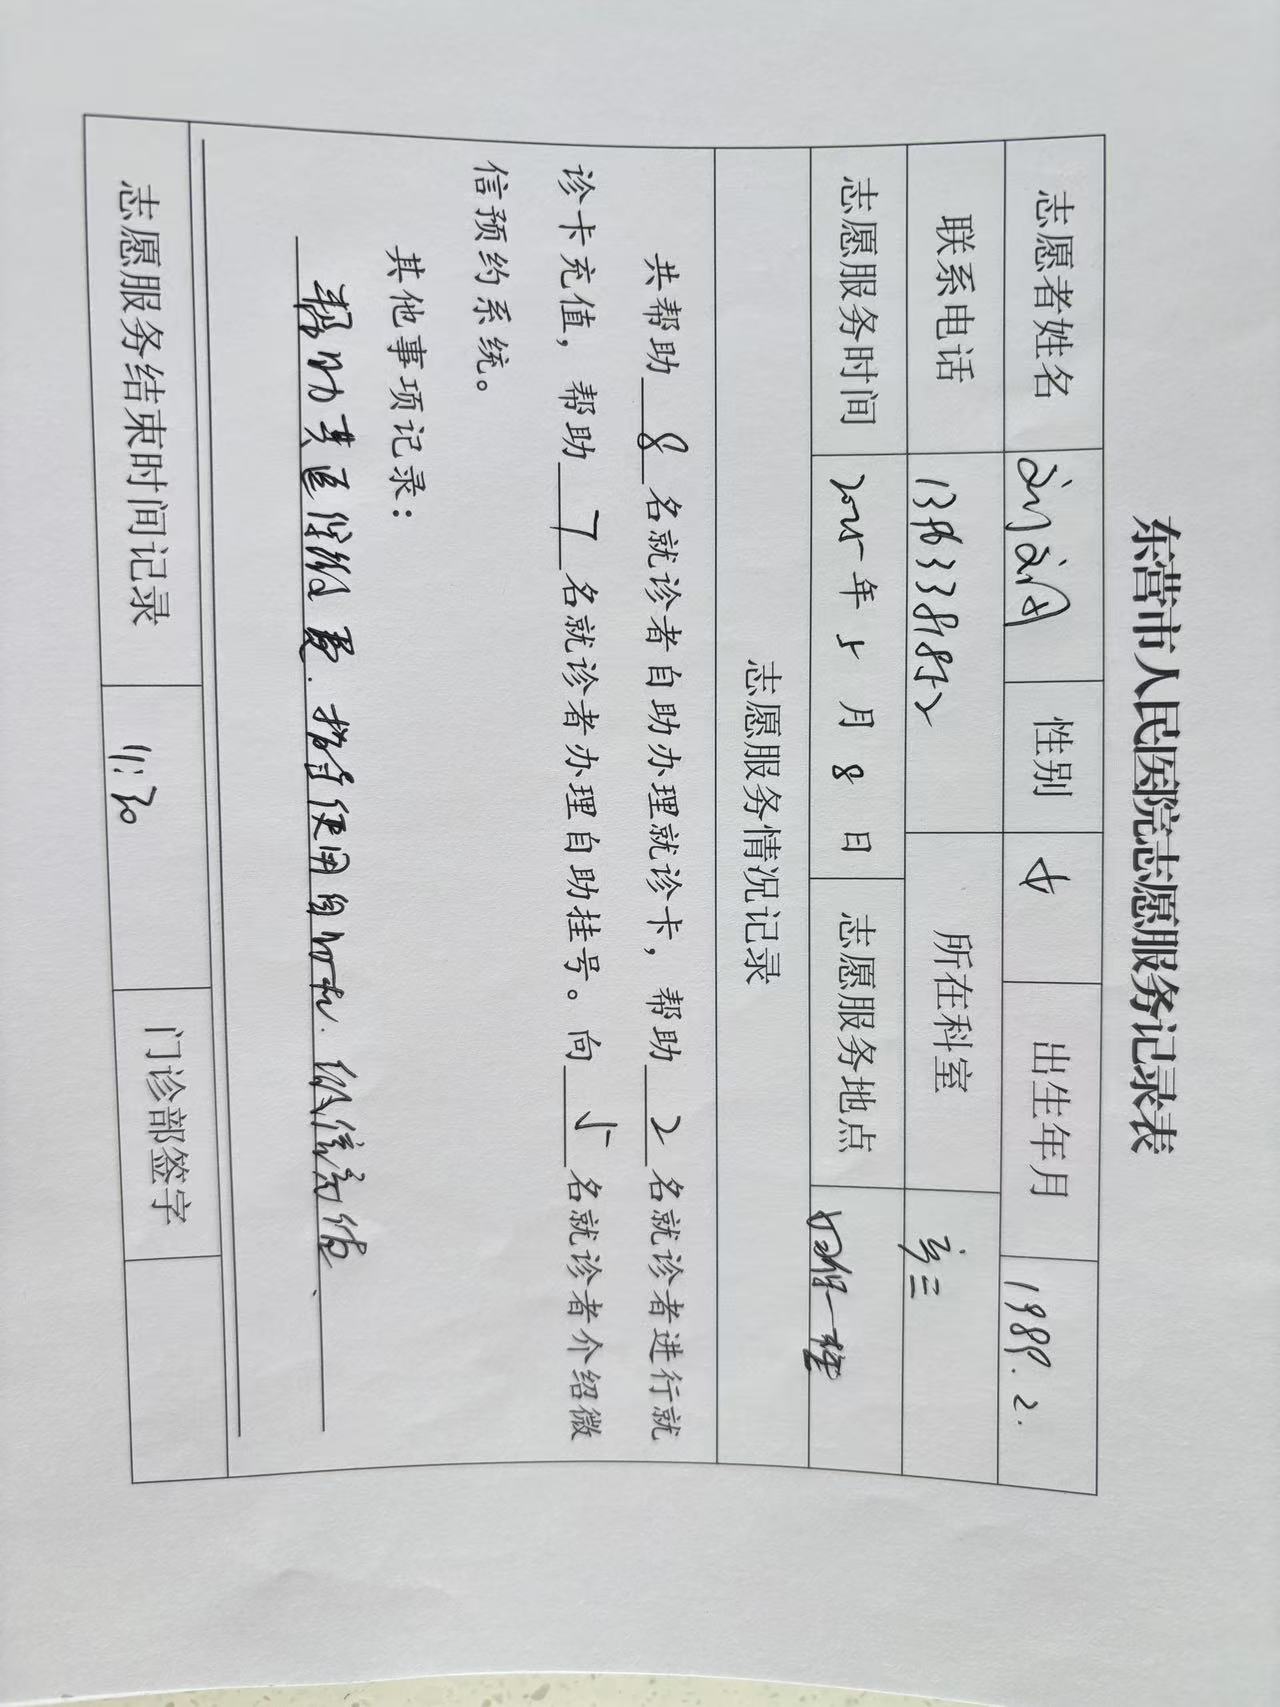 东营市人民医院志愿服务记录表
志愿者姓名 性别 女 出生年月 1989.2.
联系电话 所在科室
志愿服务时间 2025年5月8日 志愿服务地点 妇保一楼
志愿服务情况记录
共帮助 8 名就诊者自助办理就诊卡，帮助 2 名就诊者进行就
诊卡充值，帮助 7 名就诊者办理自助挂号。向 5 名就诊者介绍微
信预约系统。
其他事项记录：
帮助其医保缴费.指导使用自助机.
志愿服务结束时间记录 11:30 门诊部签字